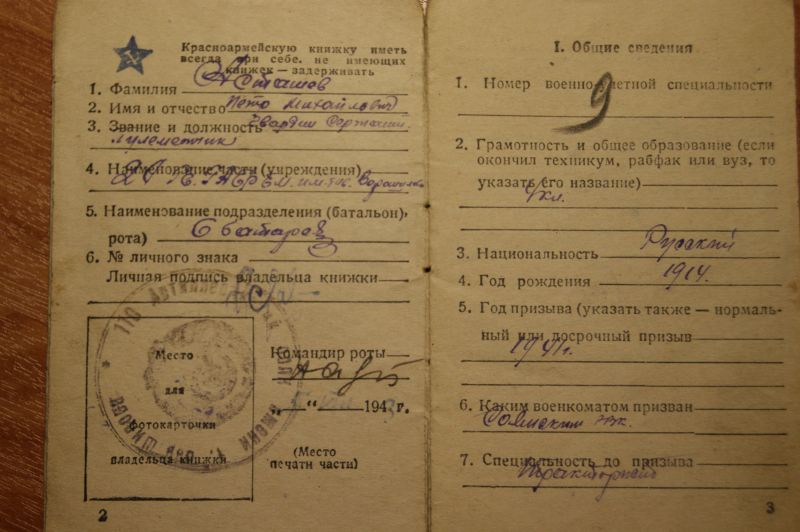 Красноармейскую книжку иметь
всегда при себе. не имеющих
книжек — задерживать
1. Фамилия Асташов
2. Имя и отчество Петр Михайлович
3. Звание и должность Гвардии Сержант
пулеметчик
4. Наименование части (учреждения)
им. тов.
5. Наименование подразделения (батальон,
рота) 6 батарея
6. № личного знака
Личная подпись владельца книжки
Место
для
фотокарточки
владельца книжки
Командир роты
" " 1943 г.
(Место
печати части)
2
I. Общие сведения
1. Номер военно-учетной специальности
9
2. Грамотность и общее образование (если
окончил техникум, рабфак или вуз, то
указать его название)
4 кл.
3. Национальность Русский
4. Год рождения 1914
5. Год призыва (указать также — нормаль-
ный или досрочный призыв
1941 г.
6. Каким военкоматом призван
7. Специальность до призыва
3